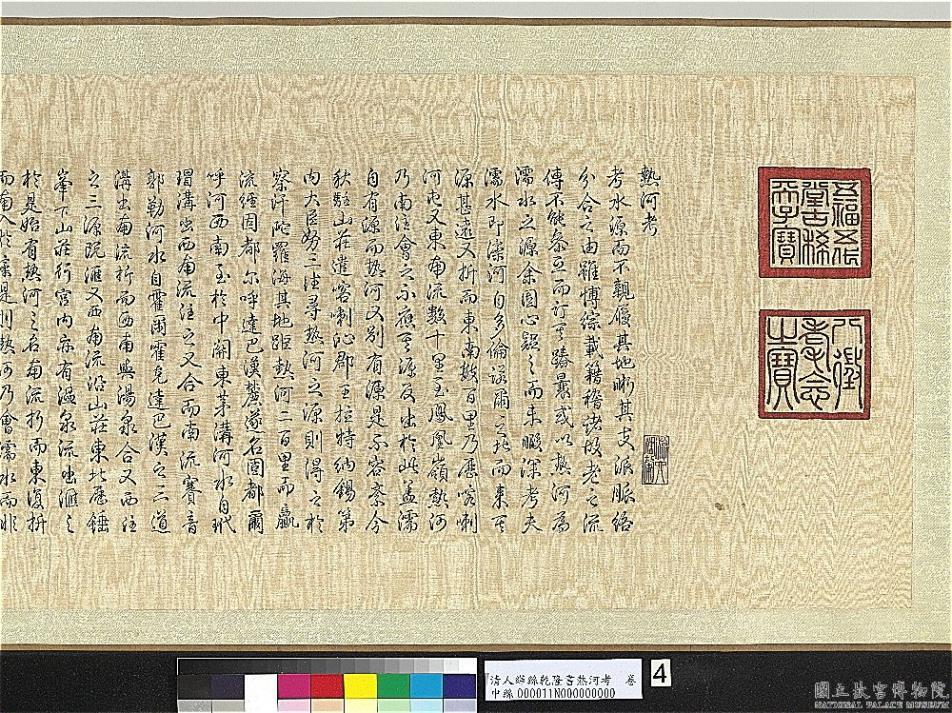 五福五代堂古稀天子寶
八徵耄念之寶
熱河考
考水源而不親履其地晰其支派脈絡
分合之由雖博綜載籍稽諸故老之流
傳不能參互而訂其踳異或以熱河為
濡水之源余固心疑之而未暇深考夫
濡水即灤河自多倫諾爾之北而來其
源甚遠又折而東南數百里乃歷喀喇
河屯又東南流數十里至鳳凰嶺熱河
乃南注會之不應其源反出於此盖濡
自有源而熱河又別有源是不容紊今
秋駐山莊遣喀喇沁郡王拉特納錫第
內大臣努三往尋熱河之源則得之於
察汗陀羅海其地距熱河二百里而贏
流經固都爾呼達巴漢麓遂名固都爾
呼河西南至於中關東茅溝河水自玳
瑁溝出西南流注之又合而南流賽音
郭勒河水自霍爾霍克達巴漢之二道
溝出南流折而西南與湯泉合又西注
之三源既滙又西南流沿山莊東北歷錘
峯下山莊行宮內亦有溫泉流出滙之
於是始有熱河之名南流折而東復折
而南入於灤是則熱河乃會濡水而非
清人緙絲乾隆書熱河考 卷
中絲 000011N000000000
4
國立故宮博物院
NATIONAL PALACE MUSEUM